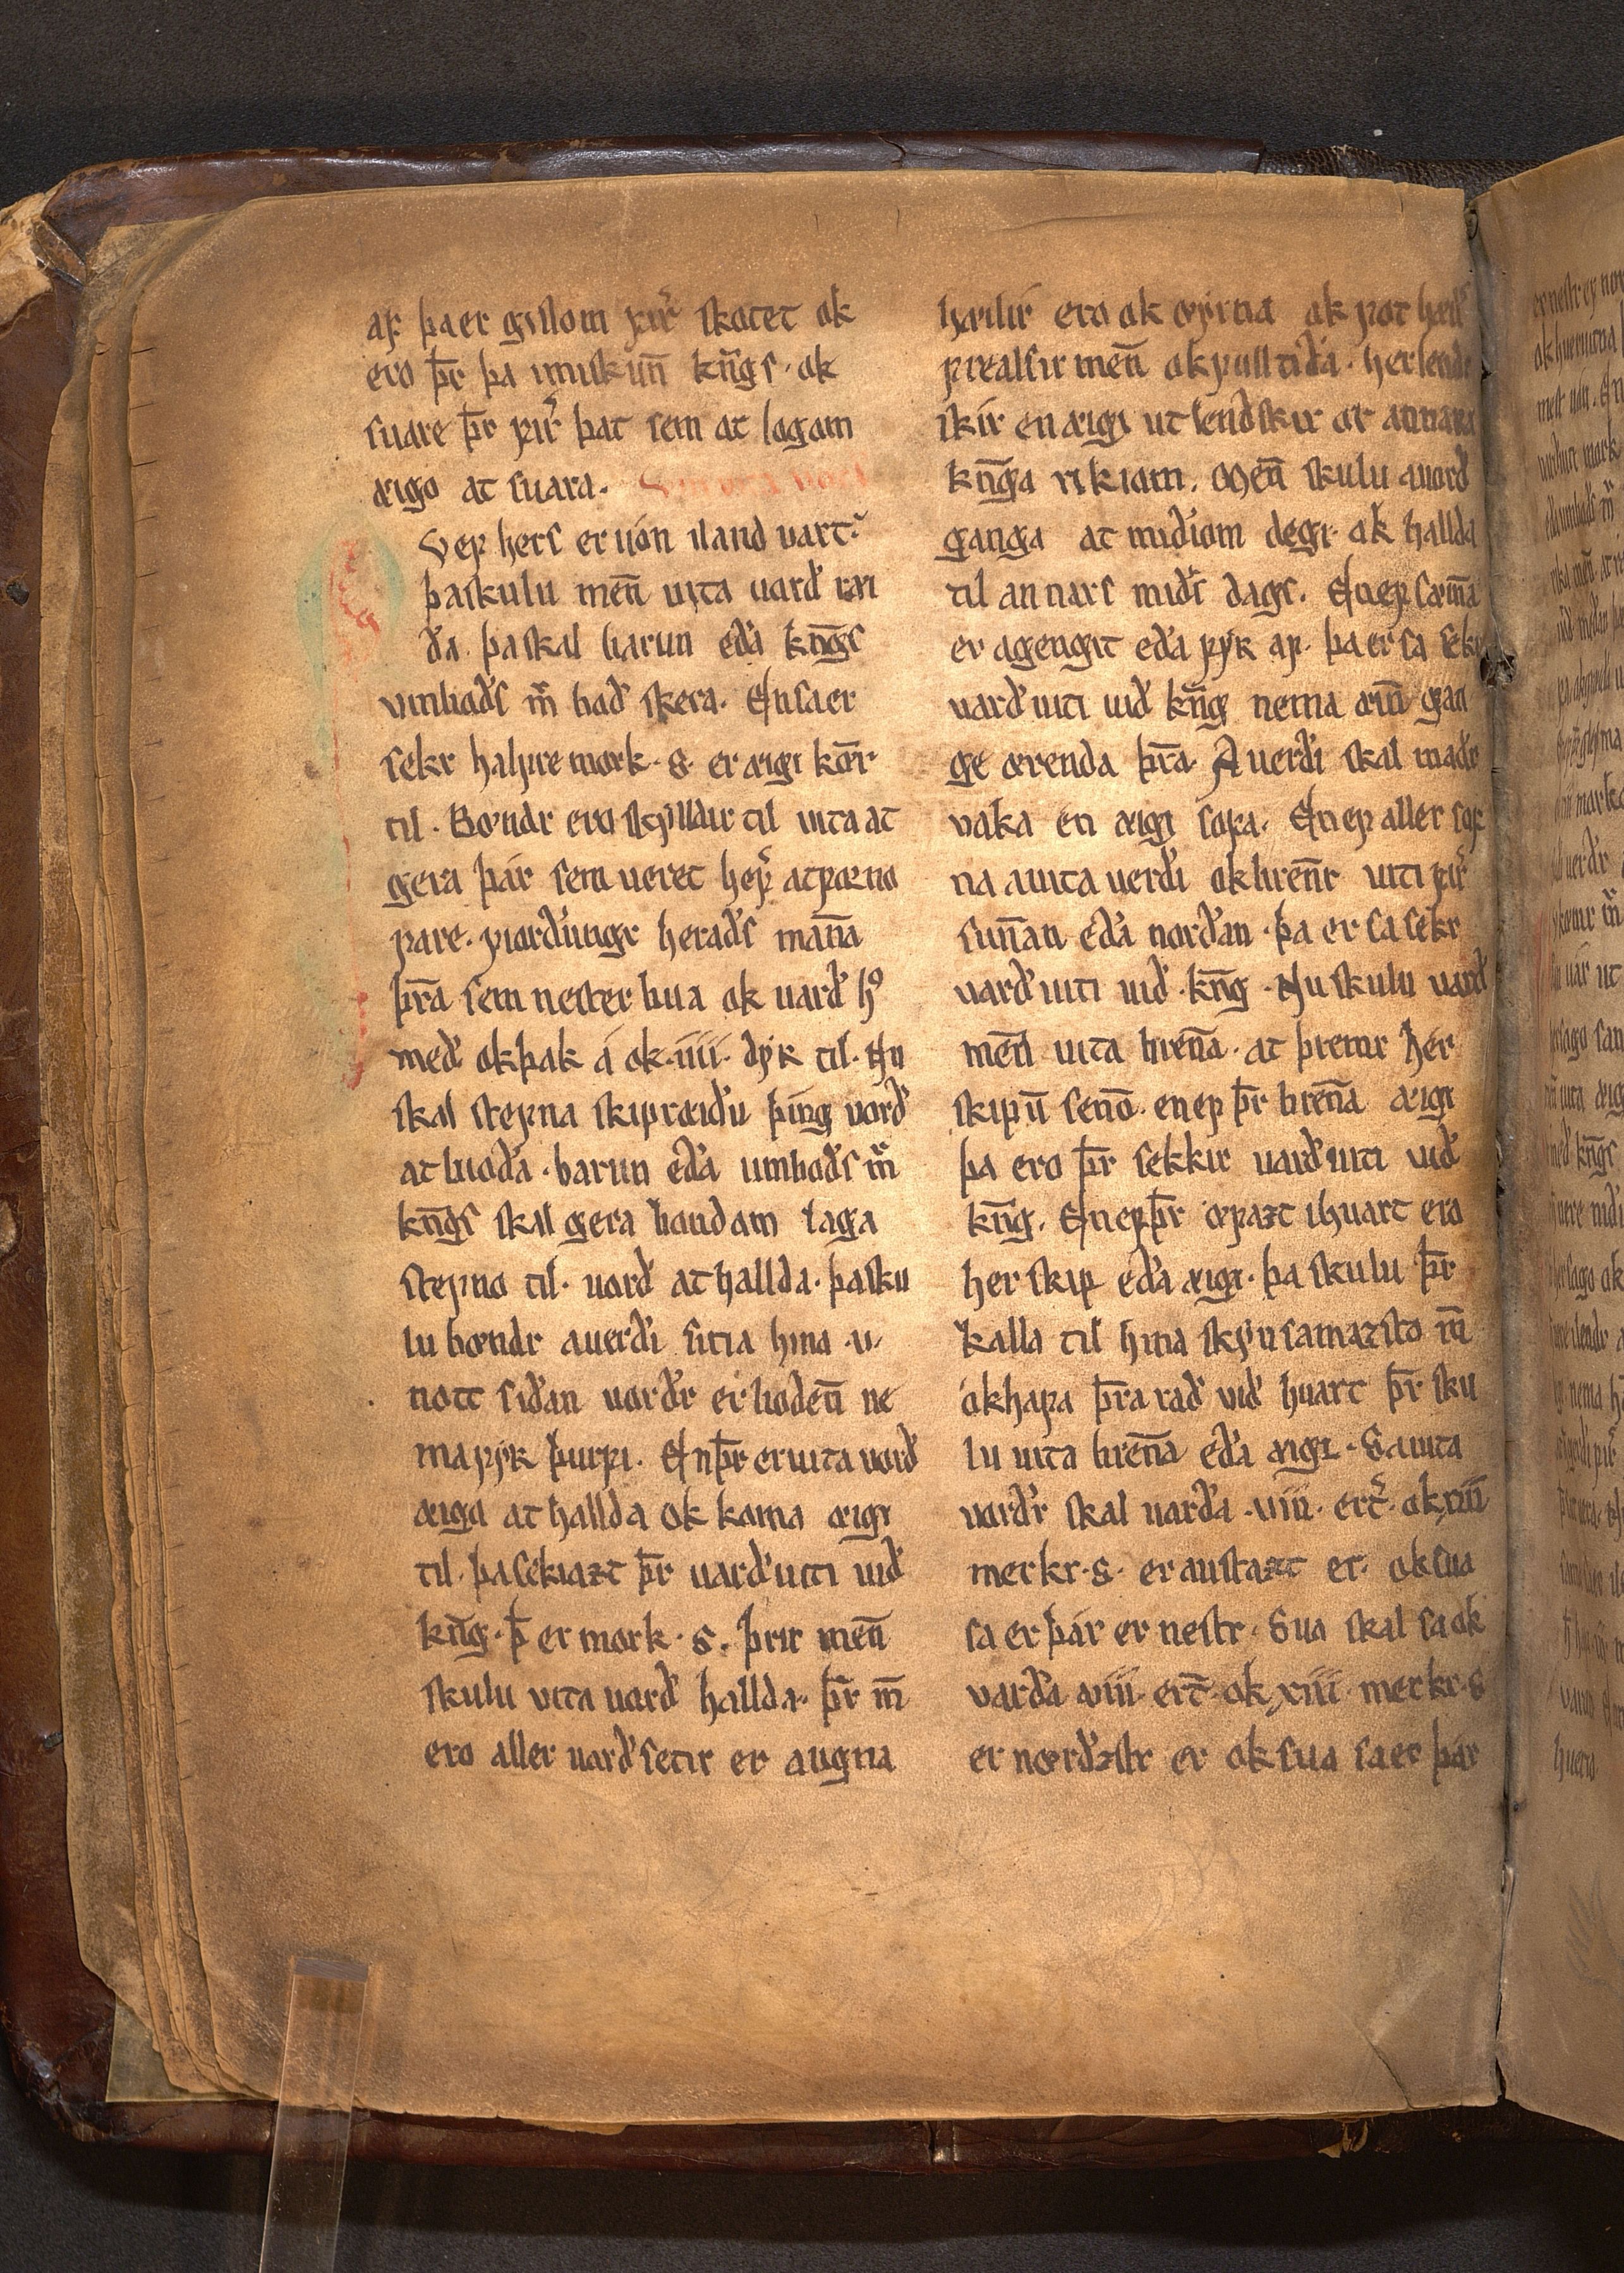 aꝼ þaer gislom ꝼir̉ skotet ok
ero þr̄ þa imiskun̄ kn̄gs · ok
suare þr̄ ꝼir̉ þat sem at logom
æigo at suara.
ꝼ hers er uón iland uart ·
þaskulu men̄ uita uarð ræi
ða · þaskal barun eða kn̄gs
vmboðs m̄ boð skera. En saer
sekr halꝼre mork · s · er æigi kōr
til · Bøndr ero skylldir til uita at
gera þár sem ueret heꝼ̉ atꝼorno
ꝼare · ꝼiorðungr heraðs man̄a
þr̄a sem nester bua ok uarð h᷒
með ok þak á ok · iiii · dyʀ til · Nu
skal steꝼna skipræiðu þing uorð
at bioða · barun eða umboðs m̄
kn̄gs skal gera bondom laga
steꝼno til · uorð at hallda · þasku
lu bøndr auerði sitia hina · v ·
nott siðan uorðr er boden̄ ne
ma ꝼyʀ þurꝼi · En þr̄ er uita uorð
æigu at hallda ok koma æigi
til · þasekiazt þr̄ uarðuiti uið
kn̄g · þ̄ er mork · s · þrir men̄
skulu vita uorð hallda · þr̄ m̄
ero aller uarðsetir er augna
hæilir ero ok øyrna ok ꝼot
ꝼrealsir men̄ ok ꝼulltiða · herlend
skir en æigi utlendskir or annara
kn̄ga rikiom. Men̄ skulu auorð
ganga at miðiom degi · ok hallda
til annars miðs dags. En eꝼ
er agengit eða ꝼyʀ aꝼ · þa er sa sekr
uarðuiti uið kn̄g nema æin̄ gan
ge ærenda þr̄a · A uerði skal maðr
vaka en æigi soꝼa · En eꝼ aller soꝼ
na auita uerði ok bren̄r uiti ꝼir̉
sun̄an eða norðan · þa er sa sekr
uarðuiti uið · kn̄g · Nu skulu uarð
men̄ uita bren̄a · at þremr her
skipū senō · en eꝼ þr̄ bren̄a æigi
þa ero þr̄ sekkir uarðuiti uið
kn̄g · En eꝼ þr̄ eꝼazt ihuart ero
herskip eða æigi · þa skulu þr̄
kalla til hina skynsamazsto m̄
ok haꝼa þr̄a rað við huart þr̄ sku
lu uita bren̄a eða æigi · Sa uita
uorðr skal uarða · viii · ert̉ · ok xiii
merkr · s · er austazt er · ok sua
sa er þár er nestr · Sua skal sa ok
varða viii · ert̄ · ok xiii · merkr · s
er norðzstr er ok sua sa er þar